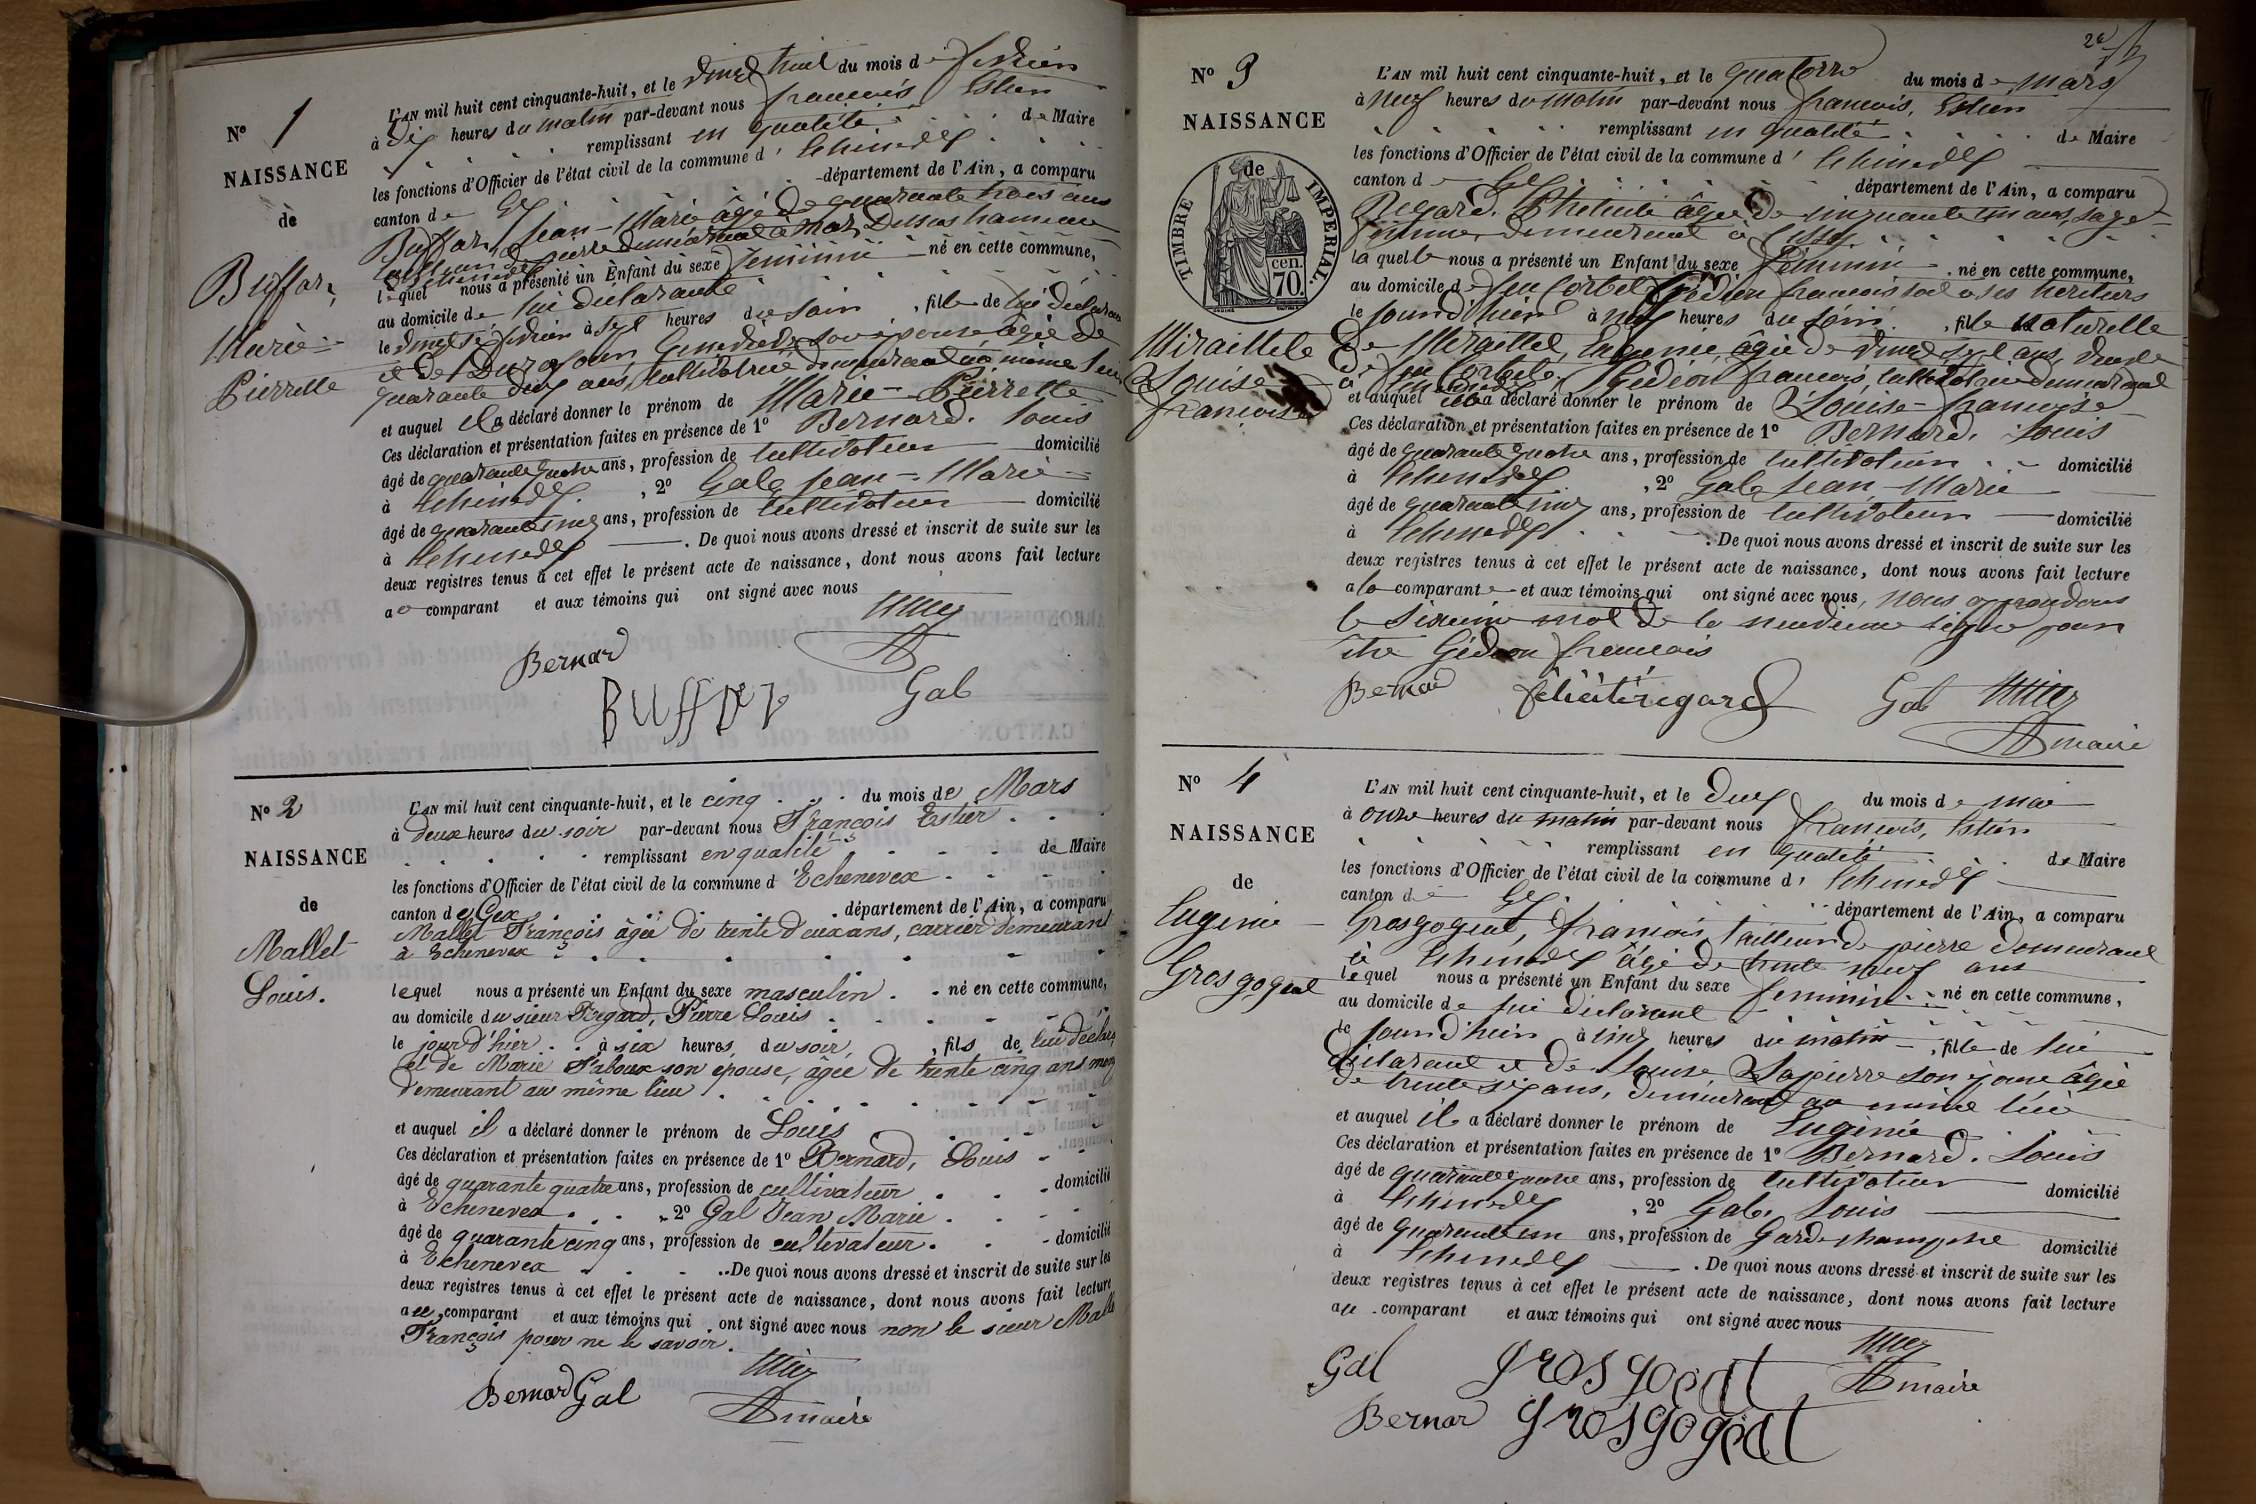 N° 1
NAISSANCE
de
Buffar,
Marie-
Pierrette
L'AN mil huit cent cinquante-huit, et le vingt huit du mois de février
à dix heures du matin par-devant nous françois Estier
remplissant en qualité de Maire
les fonctions d'Officier de l'état civil de la commune d' Echenevex
canton de Gex département de l'Ain, a comparu
Buffar, Jean-Marie âgé de quarante trois ans
tailleur de pierre demeurant à Mas Dessus hameau
d'Echenevex
lequel nous a présenté un Enfant du sexe feminin né en cette commune,
au domicile de lui déclarant
le vingt sept février à sept heures du soir, fille de lui déclarant
et de Durafour, son épouse âgée de
quarante deux ans, cultivatrice demeurant au même lieu
et auquel il a déclaré donner le prénom de Marie-Pierrette
Ces déclaration et présentation faites en présence de 1° Bernard. Louis
âgé de quarante quatre ans, profession de cultivateur domicilié
à Echenevex, 2° Gal, Jean-Marie
âgé de quarante cinq ans, profession de cultivateur domicilié
à Echenevex. De quoi nous avons dressé et inscrit de suite sur les
deux registres tenus à cet effet le présent acte de naissance, dont nous avons fait lecture
au comparant et aux témoins qui ont signé avec nous
Bernard
Gal
N° 2
NAISSANCE
de
Mallet
Louis.
L'AN mil huit cent cinquante-huit, et le cinq du mois de Mars
à deux heures du soir par-devant nous François Estier
remplissant en qualité de Maire
les fonctions d'Officier de l'état civil de la commune d'Echenevex
canton de Gex département de l'Ain, a comparu
Mallet François âgée de trente deux ans, carrier demeurant
à Echenevex
lequel nous a présenté un Enfant du sexe masculin né en cette commune,
au domicile du sieur Regard, Pierre Louis
le jour d'hier à six heures du soir, fils de lui déclar
et de Marie son épouse, âgée de trente cinq ans
demeurant au même lieu
et auquel il a déclaré donner le prénom de Louis
Ces déclaration et présentation faites en présence de 1° Bernard, Louis
âgé de quarante quatre ans, profession de cultivateur domicilié
à Echenevex, 2° Gal Jean Marie
âgé de quarante cinq ans, profession de cultivateur domicilié
à Echenevex. De quoi nous avons dressé et inscrit de suite sur les
deux registres tenus à cet effet le présent acte de naissance, dont nous avons fait lecture
au comparant et aux témoins qui ont signé avec nous non le sieur Mallet
François pour ne le savoir.
Bernard Gal
maire
2e
N° 3
NAISSANCE
de
TIMBRE IMPERIAL.
70 cen.
Miraillet
Louise
françoise
L'AN mil huit cent cinquante-huit, et le quatorze du mois de mars
à neuf heures du matin par-devant nous françois, Estier
remplissant en qualité de Maire
les fonctions d'Officier de l'état civil de la commune d' Echenevex
canton de Gex département de l'Ain, a comparu
Regard. âgée de cinquante ans, sage-
femme, demeurant à Cessy
la quelle nous a présenté un Enfant du sexe féminin né en cette commune,
au domicile de feu Corbet françois à ses héritiers
le jour d'hier à neuf heures du soir, fille naturelle
de Miraillet, âgée de vingt sept ans, veuve
de feu Corbet, Gédéon françois, cultivatrice demeurant
à Echenevex
et auquel elle a déclaré donner le prénom de Louise-françoise
Ces déclaration et présentation faites en présence de 1° Bernard. Louis
âgé de quarante quatre ans, profession de cultivateur domicilié
à Echenevex, 2° Gal, Jean Marie
âgé de quarante cinq ans, profession de cultivateur domicilié
à Echenevex. De quoi nous avons dressé et inscrit de suite sur les
deux registres tenus à cet effet le présent acte de naissance, dont nous avons fait lecture
a la comparante et aux témoins qui ont signé avec nous, nous approuvons
le sixième mot de la neuvième ligne pour
être Gédéon françois
Bernard félicité regard Gal
maire
N° 4
NAISSANCE
de
Eugenie
Grosgogeat
L'AN mil huit cent cinquante-huit, et le deux du mois de mai
à onze heures du matin par-devant nous françois, Estier
remplissant en qualité de Maire
les fonctions d'Officier de l'état civil de la commune d' Echenevex
canton de Gex département de l'Ain, a comparu
Grosgogeat, françois, tailleur de pierre demeurant
à Echenevex âgé de trente neuf ans
lequel nous a présenté un Enfant du sexe feminin né en cette commune,
au domicile de lui déclarant
le jour d'hier à cinq heures du matin, fille de lui
déclarant et de Louise, Lapierre son épouse âgée
de trente six ans, demeurant au même lieu
et auquel il a déclaré donner le prénom de Eugénie
Ces déclaration et présentation faites en présence de 1° Bernard. Louis
âgé de quarante quatre ans, profession de cultivateur domicilié
à Echenevex, 2° Gal, Louis
âgé de quarante un ans, profession de Garde champêtre domicilié
à Echenevex. De quoi nous avons dressé et inscrit de suite sur les
deux registres tenus à cet effet le présent acte de naissance, dont nous avons fait lecture
au comparant et aux témoins qui ont signé avec nous
Gal grosgogeat
maire
Bernar grosgogeat